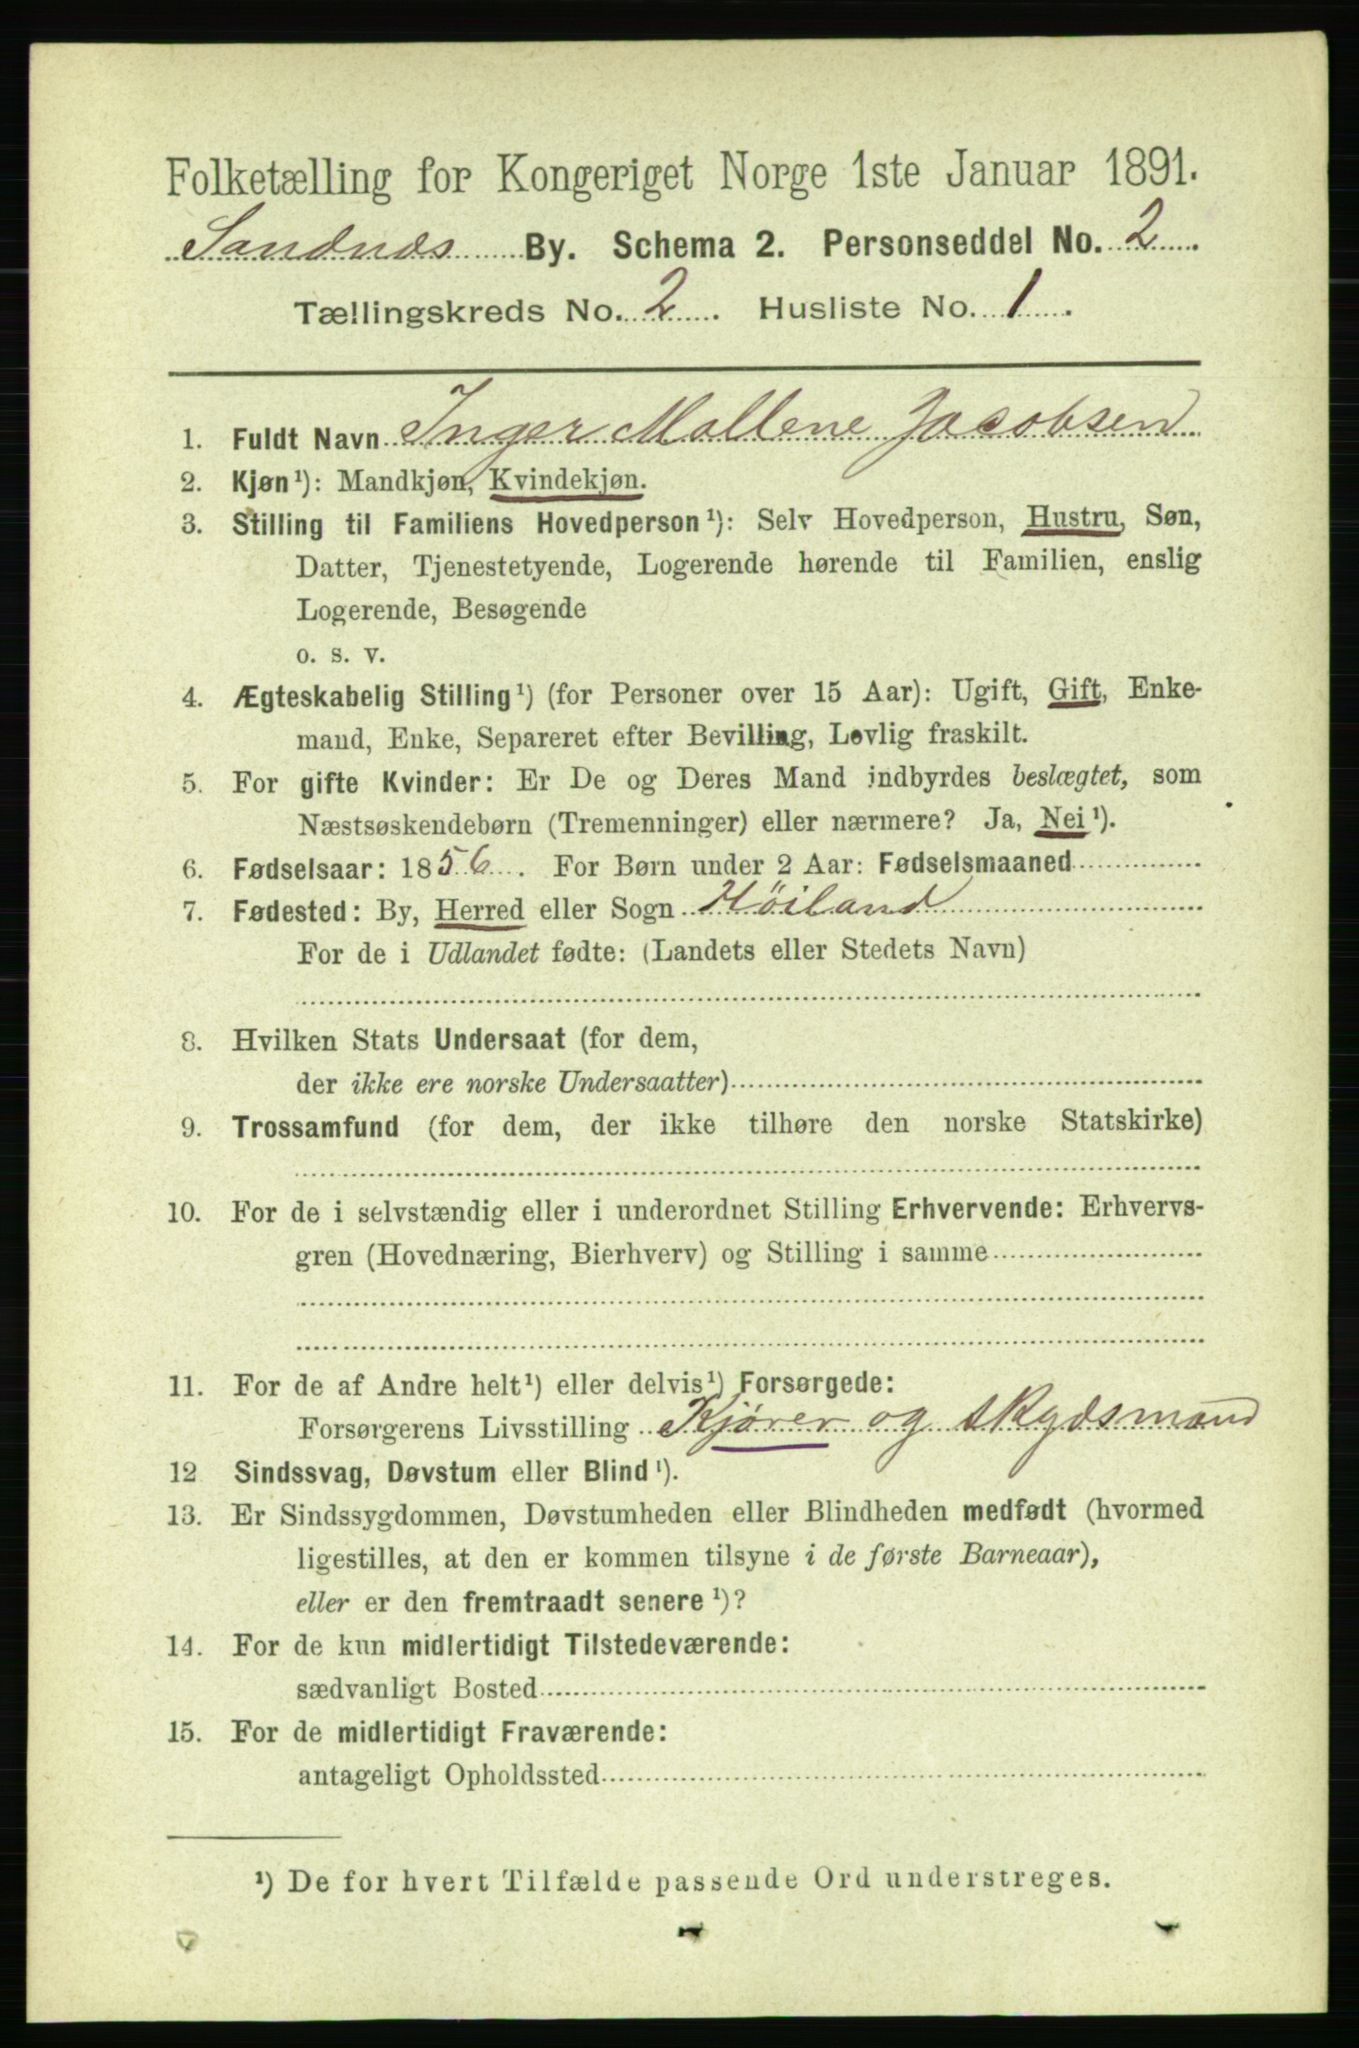 Folketælling for Kongeriget Norge 1ste Januar 1891.
Sandnæs By. Schema 2. Personseddel No. 2
Tællingskreds No. 2. Husliste No. 1.
1. Fuldt Navn Inger Mallene Jacobsen
2. Kjøn¹): Mandkjøn, Kvindekjøn.
3. Stilling til Familiens Hovedperson¹): Selv Hovedperson, Hustru, Søn,
Datter, Tjenestetyende, Logerende hørende til Familien, enslig
Logerende, Besøgende
o. s. v.
4. Ægteskabelig Stilling¹) (for Personer over 15 Aar): Ugift, Gift, Enke-
mand, Enke, Separeret efter Bevilling, Lovlig fraskilt.
5. For gifte Kvinder: Er De og Deres Mand indbyrdes beslægtet, som
Næstsøskendebørn (Tremenninger) eller nærmere? Ja, Nei¹).
6. Fødselsaar: 1856. For Børn under 2 Aar: Fødselsmaaned
7. Fødested: By, Herred eller Sogn Höiland
For de i Udlandet fødte: (Landets eller Stedets Navn)
8. Hvilken Stats Undersaat (for dem,
der ikke ere norske Undersaatter)
9. Trossamfund (for dem, der ikke tilhøre den norske Statskirke)
10. For de i selvstændig eller i underordnet Stilling Erhvervende: Erhvervs-
gren (Hovednæring, Bierhverv) og Stilling i samme
11. For de af Andre helt¹) eller delvis¹) Forsørgede:
Forsørgerens Livsstilling Kjører og skydsmand
12 Sindssvag, Døvstum eller Blind¹).
13. Er Sindssygdommen, Døvstumheden eller Blindheden medfødt (hvormed
ligestilles, at den er kommen tilsyne i de første Barneaar),
eller er den fremtraadt senere¹)?
14. For de kun midlertidigt Tilstedeværende:
sædvanligt Bosted
15. For de midlertidigt Fraværende:
antageligt Opholdssted
¹) De for hvert Tilfælde passende Ord understreges.